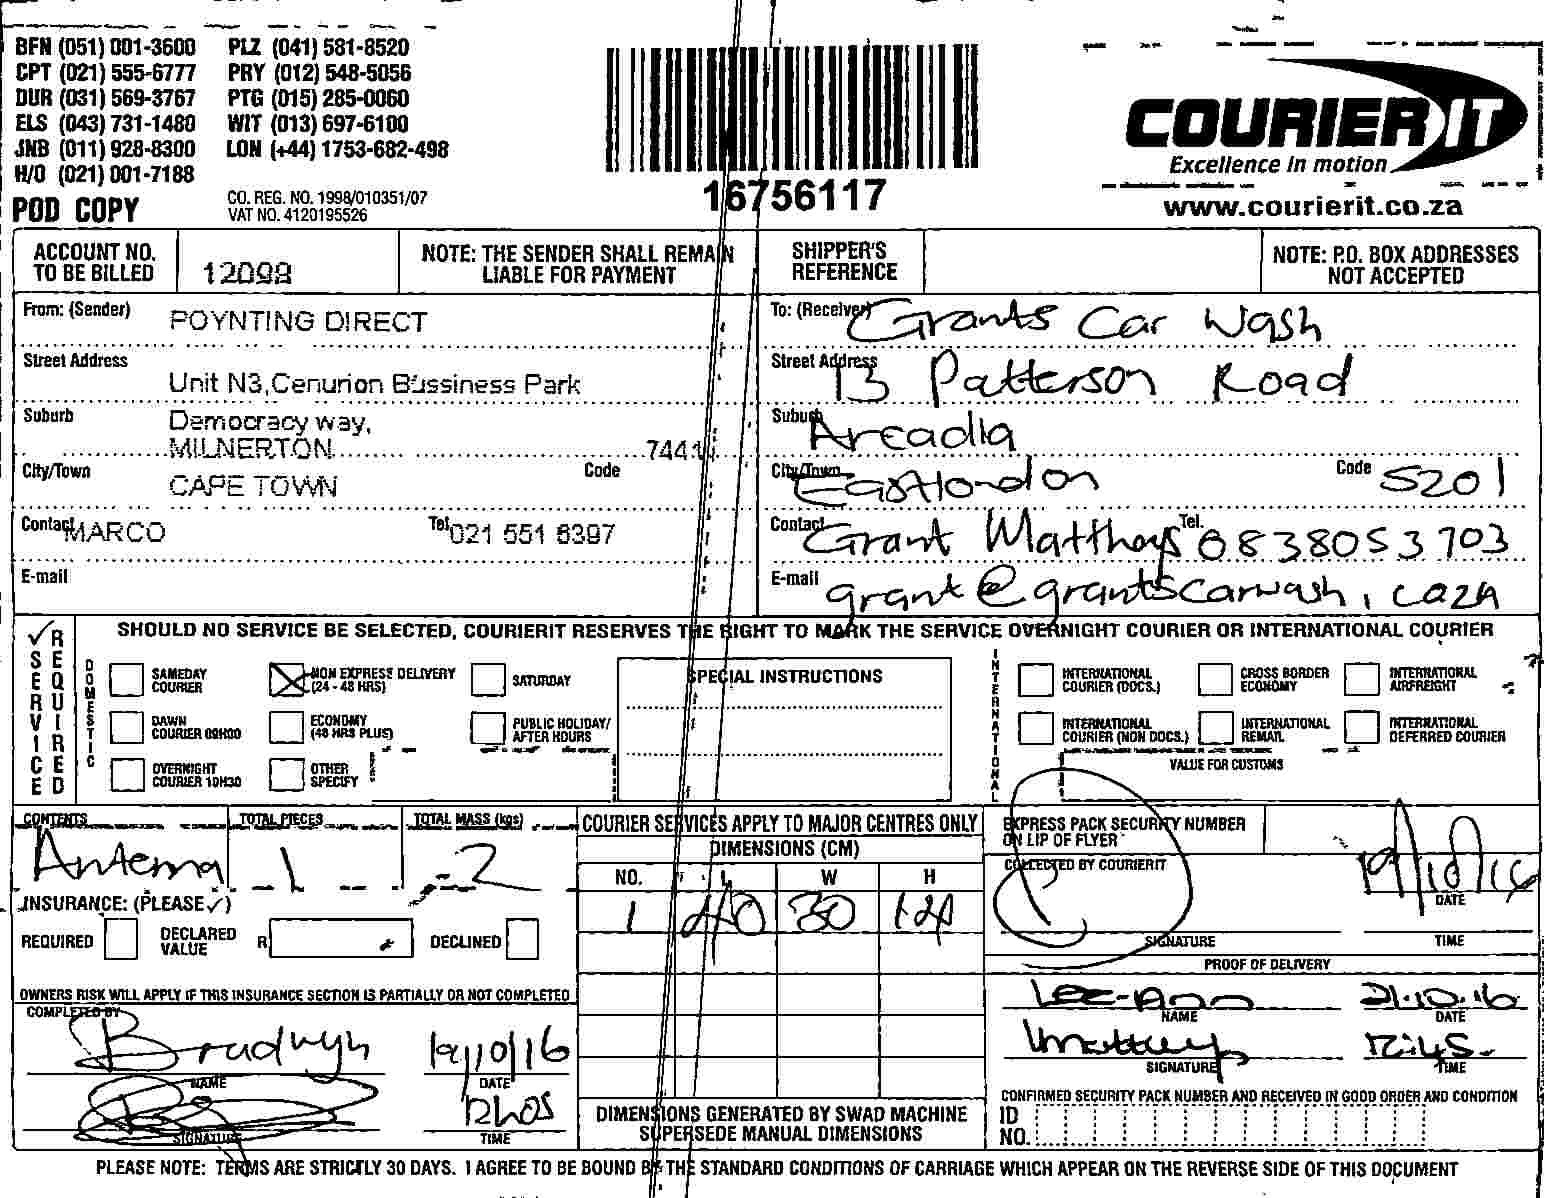 BFN (051) 001-3600 PLZ (041) 581-8520
CPT (021) 555-6777 PRY (012) 548-5056
DUR (031) 569-3767 PTG (015) 285-0060
ELS (043) 731-1480 WIT (013) 697-6100
JNB (011) 928-8300 LON (+44) 1753-682-498
H/O (021) 001-7188
POD COPY
CO. REG. NO. 1998/010351/07
VAT NO. 4120195526
16756117
COURIER IT
Excellence in motion
www.courierit.co.za
ACCOUNT NO. TO BE BILLED
12098
NOTE: THE SENDER SHALL REMAIN LIABLE FOR PAYMENT
SHIPPER'S REFERENCE
NOTE: P.O. BOX ADDRESSES NOT ACCEPTED
From: (Sender) POYNTING DIRECT
Street Address Unit N3,Cenurion Bussiness Park
Suburb Democracy way,
MILNERTON 7441
City/Town CAPE TOWN Code
Contact MARCO Tel 021 551 6397
E-mail
To: (Receiver) Grants Car Wash
Street Address 13 Patterson Road
Suburb Arcadia
City/Town Eastlondon Code 5201
Contact Grant Matthays Tel. 0838053703
E-mail grant@grantscarwash.co.za
SERVICE REQUIRED
SHOULD NO SERVICE BE SELECTED, COURIERIT RESERVES THE RIGHT TO MARK THE SERVICE OVERNIGHT COURIER OR INTERNATIONAL COURIER
DOMESTIC
SAMEDAY COURIER
NON EXPRESS DELIVERY (24 - 48 HRS)
SATURDAY
DAWN COURIER 09H00
ECONOMY (48 HRS PLUS)
PUBLIC HOLIDAY/ AFTER HOURS
OVERNIGHT COURIER 10H30
OTHER SPECIFY
SPECIAL INSTRUCTIONS
INTERNATIONAL
INTERNATIONAL COURIER (DOCS.)
CROSS BORDER ECONOMY
INTERNATIONAL AIRFREIGHT
INTERNATIONAL COURIER (NON DOCS.)
INTERNATIONAL REMAIL
INTERNATIONAL DEFERRED COURIER
VALUE FOR CUSTOMS
CONTENTS TOTAL PIECES TOTAL MASS (kgs)
Antenna 1 2
INSURANCE: (PLEASE ✓)
REQUIRED DECLARED VALUE R DECLINED
OWNERS RISK WILL APPLY IF THIS INSURANCE SECTION IS PARTIALLY OR NOT COMPLETED
COMPLETED BY
Bradwyn 19/10/16
NAME DATE
12h05
SIGNATURE TIME
COURIER SERVICES APPLY TO MAJOR CENTRES ONLY
DIMENSIONS (CM)
NO. L W H
1 40 30 14
DIMENSIONS GENERATED BY SWAD MACHINE SUPERSEDE MANUAL DIMENSIONS
EXPRESS PACK SECURITY NUMBER ON LIP OF FLYER
COLLECTED BY COURIERIT
19/10/16
DATE
SIGNATURE TIME
PROOF OF DELIVERY
Lee-Ann 21.10.16
NAME DATE
12:45
SIGNATURE TIME
CONFIRMED SECURITY PACK NUMBER AND RECEIVED IN GOOD ORDER AND CONDITION
ID NO.
PLEASE NOTE: TERMS ARE STRICTLY 30 DAYS. I AGREE TO BE BOUND BY THE STANDARD CONDITIONS OF CARRIAGE WHICH APPEAR ON THE REVERSE SIDE OF THIS DOCUMENT